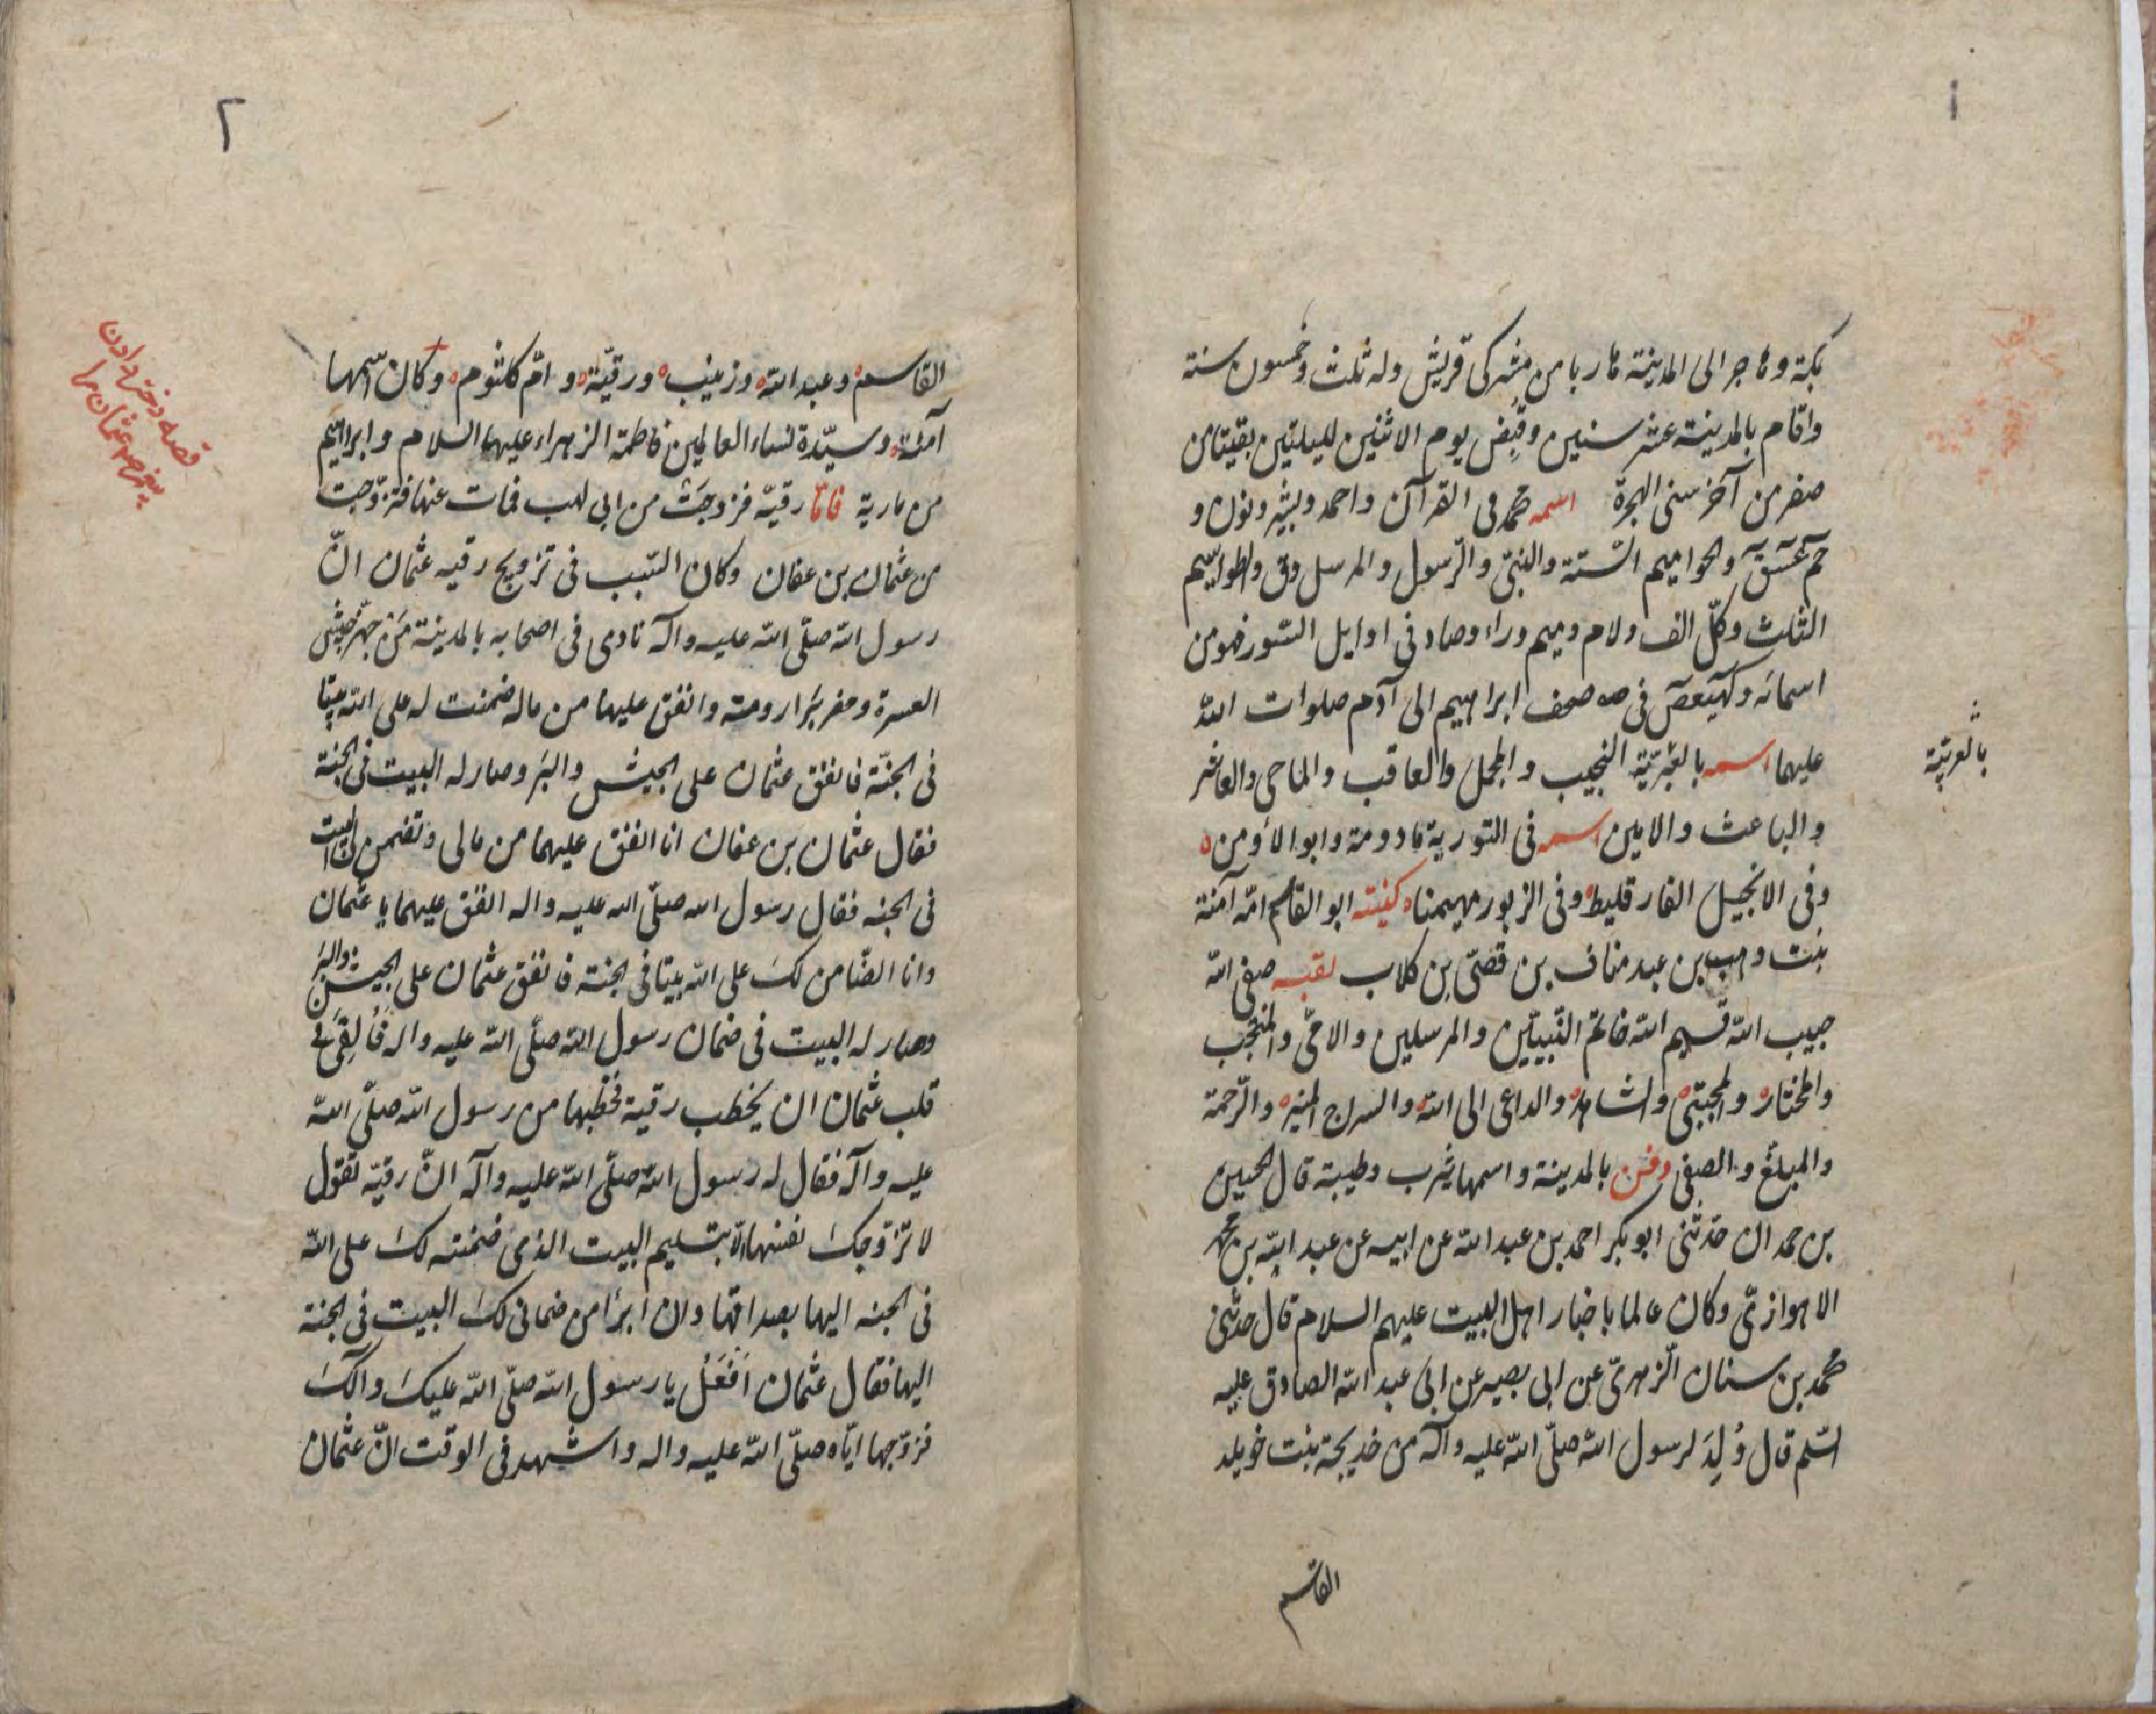 ١
بمكة وهاجر الى المدينة هاربا من مشركى قريش وله ثلث وخمسون سنة
واقام بالمدينة عشر سنين وقُبِض يوم الاثنين لليلتين بقيتا من
صفر من آخر سنى الهجرة اسمه محمد فى القرآن واحمد وبشير ونون و
حم عسق والحواميم الستة والنبىّ والرّسول والمرسل وق والطواسيم
الثلث وكلّ الف ولام وميم وراء وصاد فى اوايل السّور فهو من
اسمائه وكهيعص فى صحف ابراهيم الى آدم صلوات الله
عليهما اسمه بالعبريّة النجيب والمجمل والعاقب والماحى والعاشر
بالعربيّة
والباعث والامين اسمه فى التورية مادومة وابو الأومن
وفى الانجيل الفارقليط وفى الزبور مهيمنا كنيته ابو القاسم امّه آمنة
بنت وهب بن عبد مناف بن قصىّ بن كلاب لقبه صفى الله
حبيب الله قسيم الله خاتم النّبيّين والمرسلين والاحىّ والمنتجب
والمختار والمجتبى والشاهد والداعى الى الله والسراج المنير والرّحمة
والمبلغ والصفى دفن بالمدينة واسمها يثرب وطيبة قال الحسين
بن حمدان حدّثنى ابو بكر احمد بن عبد الله عن ابيه عن عبد الله بن محمد
الاهوازىّ وكان عالما باخبار اهل البيت عليهم السلام قال حدّثنى
محمد بن سنان الزّهرىّ عن ابى بصير عن ابى عبد الله الصادق عليه
السّلم قال وُلِدَ لرسول الله صلّى الله عليه وآله من خديجة بنت خويلد
القاسم
٢
القاسم وعبد الله وزينب ورقيّة وامّ كلثوم وكان اسمها
آمنة وسيّدة نساء العالمين فاطمة الزهراء عليها السلام وابراهيم
من مارية فامّا رقيّة فزوجَتْ من ابى لهب فمات عنها فتزوّجت
من عثمان بن عفان وكان السّبب فى تزويج رقيه عثمان انّ
رسول الله صلّى الله عليه وآله نادى فى اصحابه بالمدينة مَن جهّز جيش
العسرة وحفر بئر رومة وانفق عليهما من ماله ضمنت له على الله بيتا
فى الجنّة فانفق عثمان على الجيش والبئر وصار له البيت فى الجنة
فقال عثمان بن عفان انا انفق عليهما من مالى وتضمن لى البيت
فى الجنه فقال رسول الله صلّى الله عليه واله انفق عليهما يا عثمان
وانا الضّامن لك على الله بيتا فى الجنة فانفق عثمان على الجيش والبئر
وصار له البيت فى ضمان رسول الله صلّى الله عليه واله فَأُلقِىَ فى
قلب عثمان ان يخطب رقية فخطبها من رسول الله صلّى الله
عليه وآله فقال له رسول الله صلّى الله عليه وآله انّ رقيّة تقول
لا تزوّجك نفسها الّا بتسليم البيت الذى ضمنته لك على الله
فى الجنه اليها بصداقها وان ابرأ من ضمانى لك البيت فى الجنة
اليها فقال عثمان اَفعَلُ يا رسول الله صلّى الله عليك وآلك
فزوّجها ايّاه صلّى الله عليه واله واشهد فى الوقت انّ عثمان
قصه دختر دادن
پيغمبر عثمان را